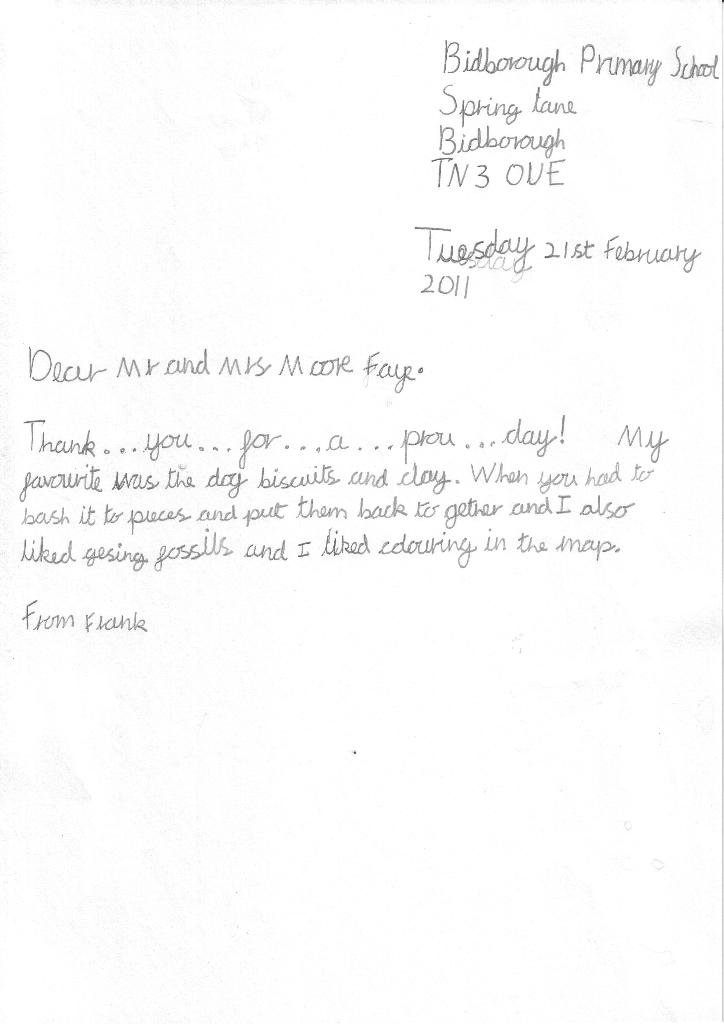 Bidborough Primary School
Spring lane
Bidborough
TN3 0UE
Tuesday 21st February
2011
Dear Mr and Mrs Moore Faye.
Thank...you...for...a...prou...day! My
favourite was the dog biscuits and clay. When you had to
bash it to pieces and put them back to gether and I also
liked gesing fossils and I liked colouring in the map.
From Frank